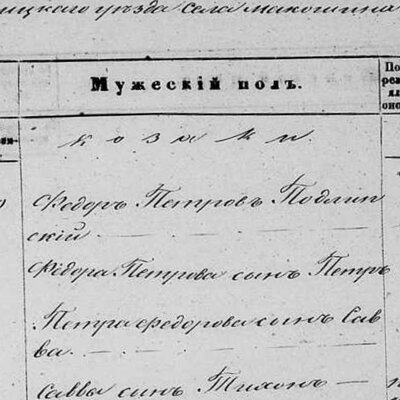 ицкаго уѣзда Села Макошина
Мужескій полъ.
По
козаки
Ѳедоръ Петровъ Подлип
скій
Ѳедора Петрова сынъ Петръ
Петра Ѳедорова сынъ Сав
ва.
Саввы сынъ Тихонъ